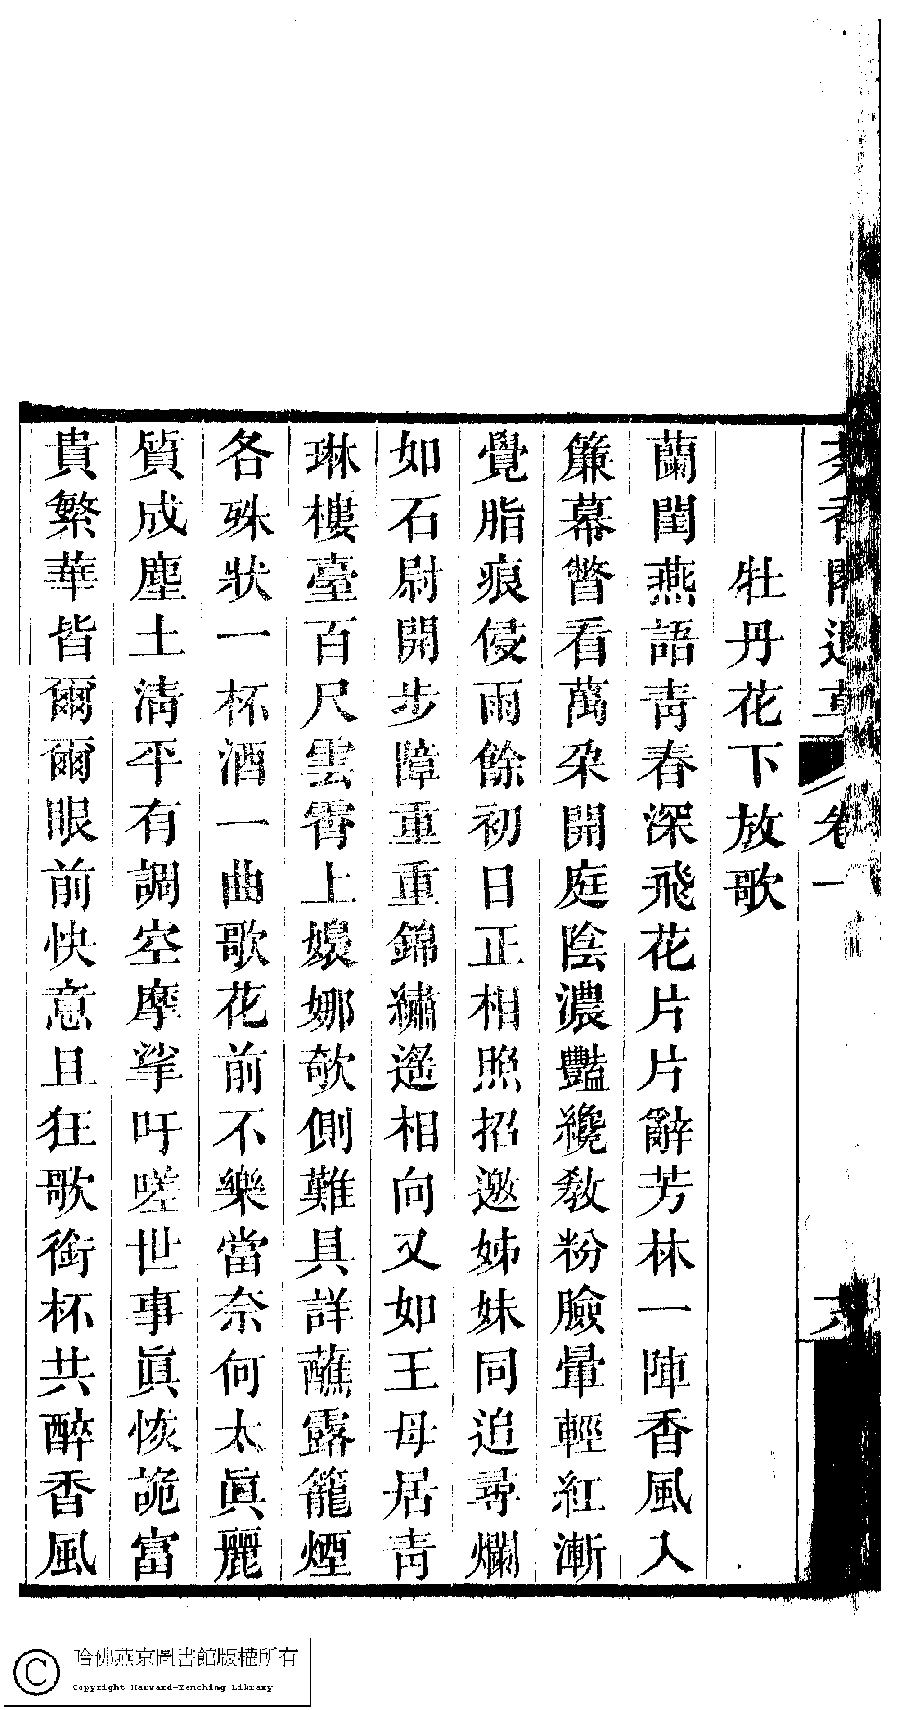 牡丹花下放歌
蘭閨燕語青春深飛花片片辭芳林一陣香風入
簾幕瞥看萬朶開庭陰濃豔纔敎粉臉暈輕紅漸
覺脂痕侵雨餘初日正相照招邀姊妹同追尋爛
如石尉開步障重重錦繡遥相向又如王母居青
琳樓臺百尺雲霄上嬝娜欹側難具詳蘸露籠煙
各殊狀一杯酒一曲歌花前不樂當奈何太眞麗
質成塵土淸平有調空摩挲吁嗟世事眞恢詭富
貴繁華皆爾爾眼前快意且狂歌銜杯共醉香風
卷一
哈佛燕京圖書館版權所有
Copyright Harvard-Yenching Library